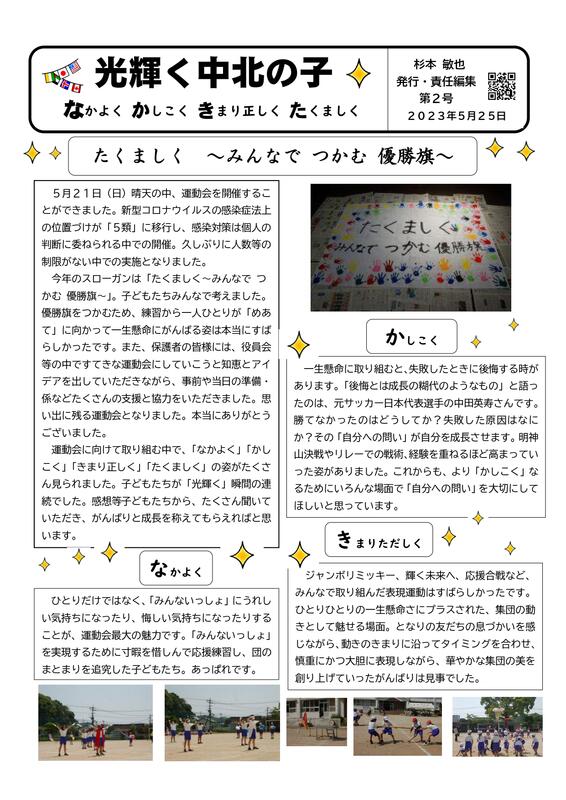 光輝く中北の子
なかよく かしこく きまり正しく たくましく
杉本 敏也
発行・責任編集
第２号
２０２３年５月２５日
たくましく ～みんなで つかむ 優勝旗～
５月２１日（日）晴天の中、運動会を開催するこ
とができました。新型コロナウイルスの感染症法上
の位置づけが「５類」に移行し、感染対策は個人の
判断に委ねられる中での開催。久しぶりに人数等の
制限がない中での実施となりました。
今年のスローガンは「たくましく～みんなで つ
かむ 優勝旗～」。子どもたちみんなで考えました。
優勝旗をつかむため、練習から一人ひとりが「めあ
て」に向かって一生懸命にがんばる姿は本当にすば
らしかったです。また、保護者の皆様には、役員会
等の中ですてきな運動会にしていこうと知恵とアイ
デアを出していただきながら、事前や当日の準備・
係などたくさんの支援と協力をいただきました。思
い出に残る運動会となりました。本当にありがとう
ございました。
運動会に向けて取り組む中で、「なかよく」「かし
こく」「きまり正しく」「たくましく」の姿がたくさ
ん見られました。子どもたちが「光輝く」瞬間の連
続でした。感想等子どもたちから、たくさん聞いて
いただき、がんばりと成長を称えてもらえればと思
います。
たくましく
みんなで つかむ 優勝旗
かしこく
一生懸命に取り組むと、失敗したときに後悔する時が
あります。「後悔とは成長の糊代のようなもの」と語っ
たのは、元サッカー日本代表選手の中田英寿さんです。
勝てなかったのはどうしてか？失敗した原因はなに
か？その「自分への問い」が自分を成長させます。明神
山決戦やリレーでの戦術、経験を重ねるほど高まってい
った姿がありました。これからも、より「かしこく」な
るためにいろんな場面で「自分への問い」を大切にして
ほしいと思っています。
なかよく
ひとりだけではなく、「みんないっしょ」にうれし
い気持ちになったり、悔しい気持ちになったりする
ことが、運動会最大の魅力です。「みんないっしょ」
を実現するために寸暇を惜しんで応援練習し、団の
まとまりを追究した子どもたち。あっぱれです。
きまりただしく
ジャンボリミッキー、輝く未来へ、応援合戦など、
みんなで取り組んだ表現運動はすばらしかったです。
ひとりひとりの一生懸命さにプラスされた、集団の動
きとして魅せる場面。となりの友だちの息づかいを感
じながら、動きのきまりに沿ってタイミングを合わせ、
慎重にかつ大胆に表現しながら、華やかな集団の美を
創り上げていったがんばりは見事でした。